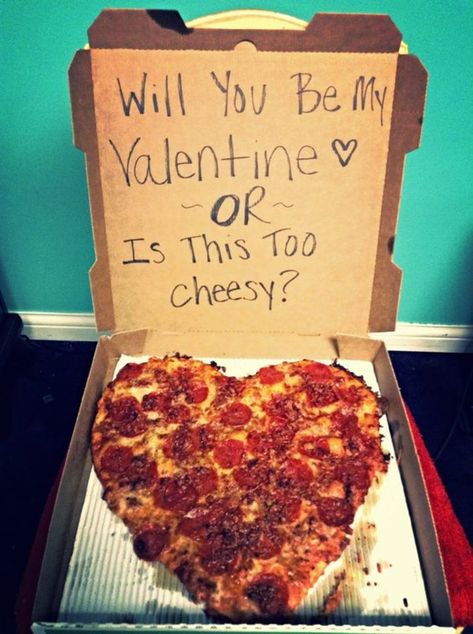 Will You Be My
Valentine ♡
~ OR ~
Is This Too
cheesy?